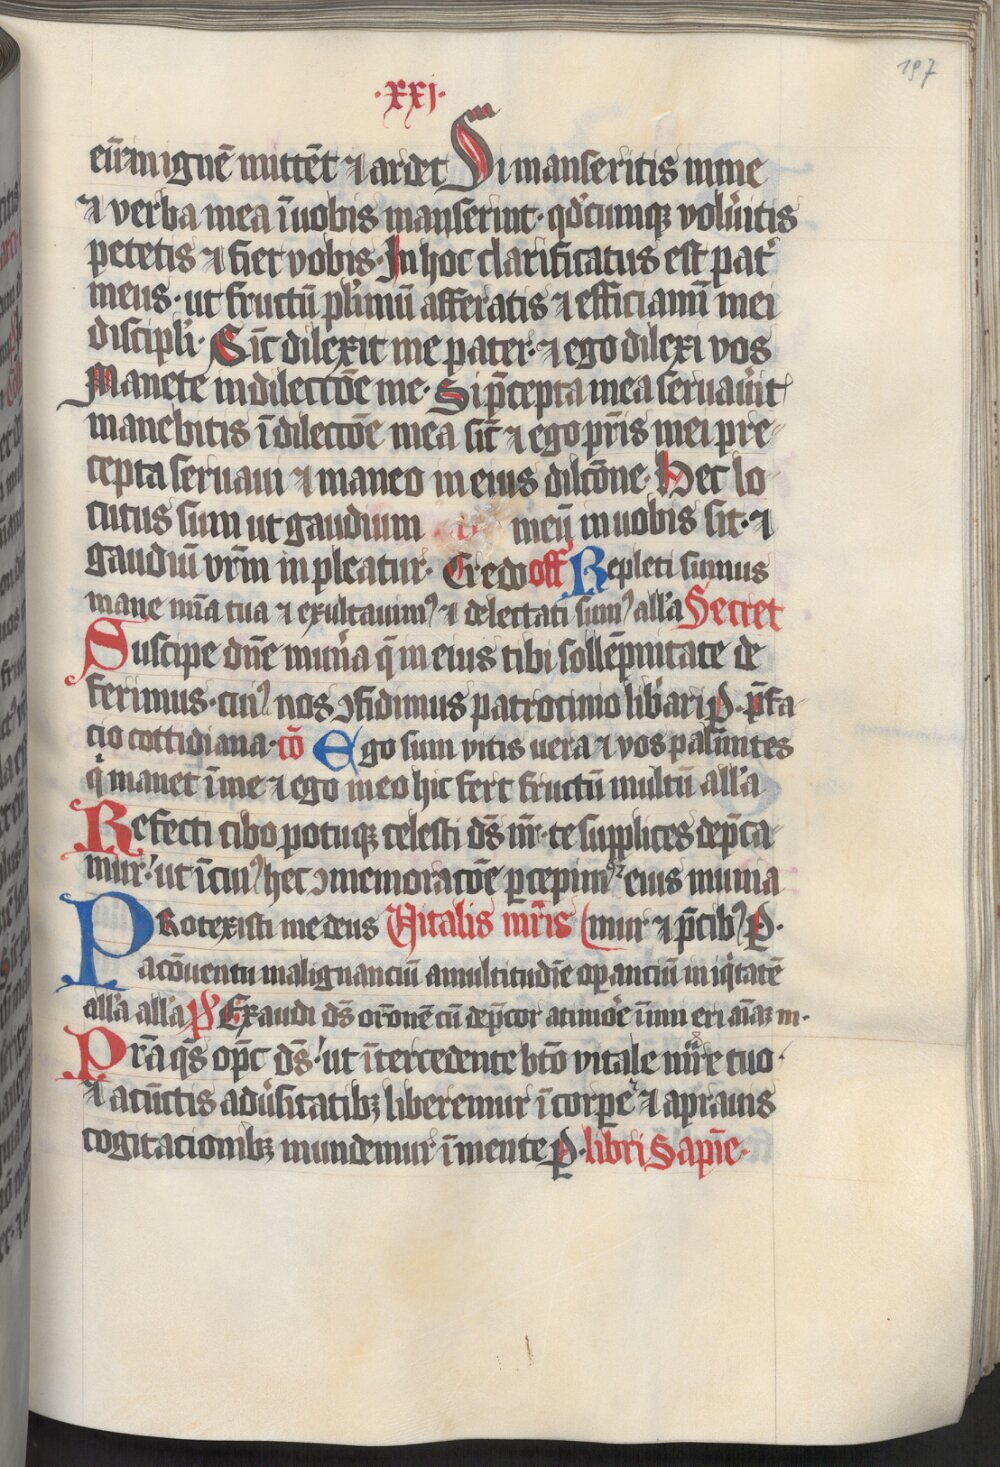 197
·xxj·
eū in ignē mittēt ⁊ ardet Si manseritis in me
⁊ verba mea ī uobis manserint · qd̾cumqꝫ volu̾itis
petetis ⁊ fiet vobis · In hoc clarificatus est pat̾
meus · ut fructū pl̾imū afferatis ⁊ efficiamī mei
discipl̾i · Sic̄ dilexit me pater · ⁊ ego dilexi vos
Manete in dilectōe me · Si p̄cepta mea seruau̾it
manebitis ī dilectōe mea sic̄ ⁊ ego pr̄is mei pre
cepta seruaui ⁊ maneo in eius dilcōne · Hec lo
cutus sum ut gaudium meū in uobis sit · ⁊
gaudiū vr̄m inpleatur · Credo off Repleti sumus
mane mīa tua ⁊ exultauimꝰ ⁊ delectati sumꝰ all̾a Secret
Suscipe dn̄e mun̾a q̄ in eius tibi sollēpnitate de
ferimus · cuiꝰ nos ꝯfidimus patrocinio lib̾ari ꝑ · p̄fa
cio cottidiana · cō Ego sum vitis uera ⁊ vos palmites
q̾ manet ī me ⁊ ego in eo hic fert fructū multū all̾a
Refecti cibo potuqꝫ celesti ds̄ nr̄ · te supplices dep̄ca
mur · ut ī cuiꝰ hec ꝯmemoracōe ꝑcepimꝰ eius munia
Protexisti me deus Vitalis mr̄is (mur ⁊ p̄cibꝰ ꝑ ·
a cōuentu malignanciū a multitudīe oꝑanciū iniq̾tatē
all̾a all̾a p̄s Exaudi ds̄ or̄onē cū dep̄cor a timōe inimi eri aīaꝫ m ·
Pr̄a q̄s opc̄ ds̄ · ut ītercedente btō vitale mr̄e tuo ·
⁊ a cūctis adu̾sitatibꝫ liberemur ī corꝑe ⁊ a prauis
cogitacionibꝫ mundemur ī mente ꝑ · libri Sapīe ·